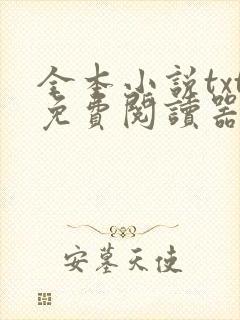 全本小説txt
免費閱讀器
安墓天使